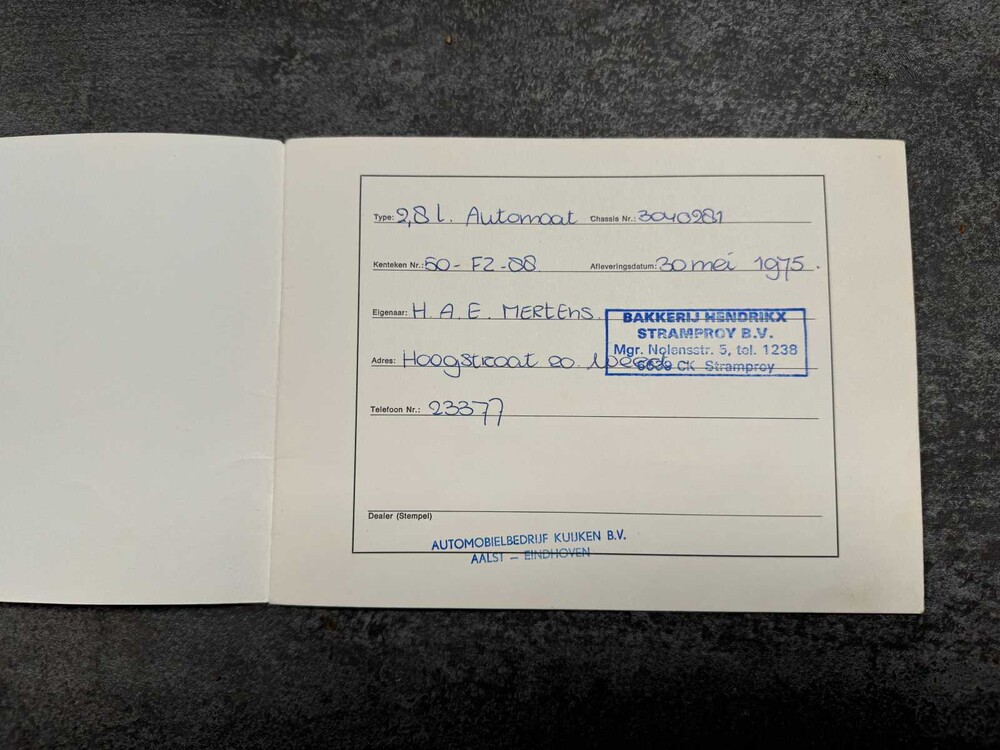 Type: 2,8 l. Automaat Chassis Nr.: 3040281
Kenteken Nr.: 50-FZ-88 Afleveringsdatum: 30 mei 1975.
Eigenaar: H.A.E. MERTENS.
BAKKERIJ HENDRIKX
STRAMPROY B.V.
Mgr. Nolensstr. 5, tel. 1238
6039 CK Stramproy
Adres: Hoogstraat 20 Weert
Telefoon Nr.: 23377
Dealer (Stempel)
AUTOMOBIELBEDRIJF KUIJKEN B.V.
AALST – EINDHOVEN